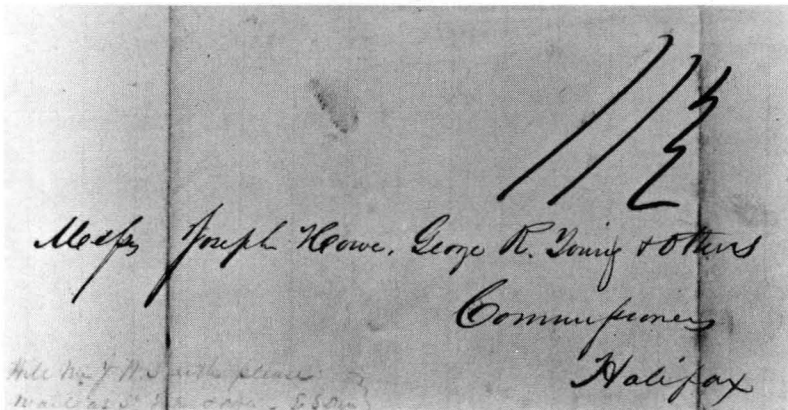 Messrs Joseph Howe, George R. Young & Others
Commissioners
Halifax
Will Mr J. W. Smith please